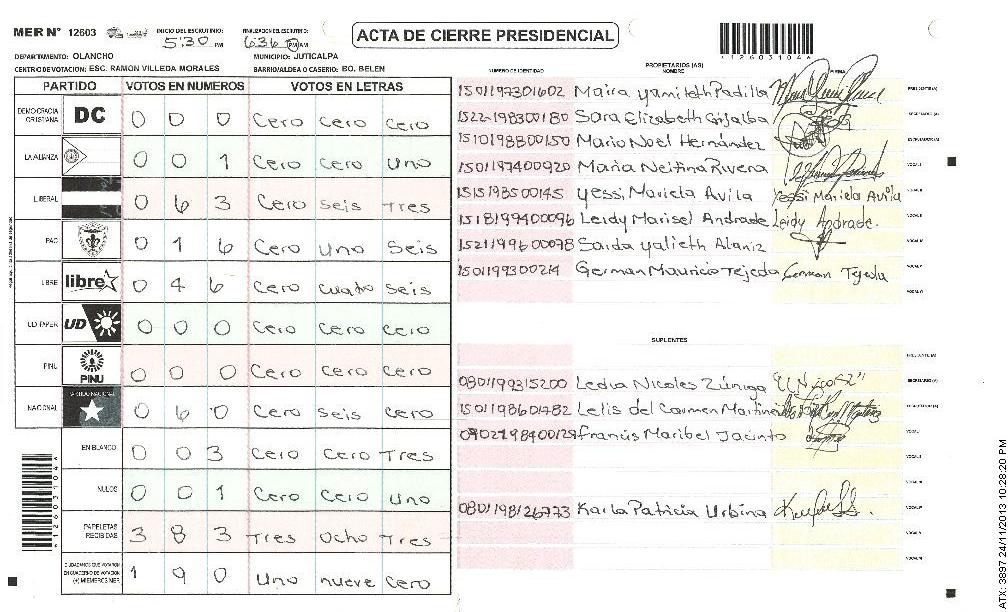 MER Nº 12603
INICIO DEL ESCRUTINIO: 5:30 PM
FINALIZACION DEL ESCRUTINIO: 6:36 PM AM
ACTA DE CIERRE PRESIDENCIAL
*12603104*
DEPARTAMENTO: OLANCHO
MUNICIPIO: JUTICALPA
CENTRO DE VOTACION: ESC. RAMON VILLEDA MORALES
BARRIO/ALDEA O CASERIO: BO. BELEN
PARTIDO VOTOS EN NUMEROS VOTOS EN LETRAS
DEMOCRACIA CRISTIANA DC 0 0 0 Cero cero cero
LA ALIANZA 0 0 1 Cero Cero uno
LIBERAL 0 6 3 Cero seis Tres
PAC 0 1 6 Cero Uno Seis
LIBRE libre 0 4 6 Cero cuatro seis
UD-FAPER UD 0 0 0 Cero Cero cero
PINU PINU 0 0 0 Cero Cero cero
NACIONAL PARTIDO NACIONAL 0 6 0 Cero seis cero
EN BLANCO 0 0 3 Cero Cero Tres
NULOS 0 0 1 Cero Cero uno
PAPELETAS RECIBIDAS 3 8 3 Tres Ocho Tres
CIUDADANOS QUE VOTARON EN CUADERNO DE VOTACION (+) MIEMBROS MER 1 9 0 Uno nueve cero
*12603104*
PROPIETARIOS (AS)
NUMERO DE IDENTIDAD NOMBRE FIRMA
1501197301602 Maira Yamileth Padilla PRESIDENTE (A)
1522198300180 Sara Elizabeth Grijalba SECRETARIO (A)
1510198800150 Mario Noel Hernández ESCRUTADOR (A)
1501197400920 Maria Neitina Rivera VOCAL I
1515198500145 Yessi Mariela Avila Yessi Mariela Avila VOCAL II
1518199400096 Leidy Marisel Andrade Leidy Andrade. VOCAL III
1521199600078 Saida Yalieth Alaniz VOCAL IV
1501199300214 German Mauricio Tejeda German Tejeda VOCAL V
VOCAL VI
SUPLENTES
PRESIDENTE (A)
0801199315200 Ledia Nicoles Zúniga SECRETARIO (A)
1501198601782 Lelis del Carmen Martinez ESCRUTADOR (A)
0902198400129 Francis Maribel Jacinto VOCAL I
VOCAL II
VOCAL III
0801198126773 Karla Patricia Urbina VOCAL IV
VOCAL V
VOCAL VI
ATX: 3897 24/11/2013 10:28:20 PM